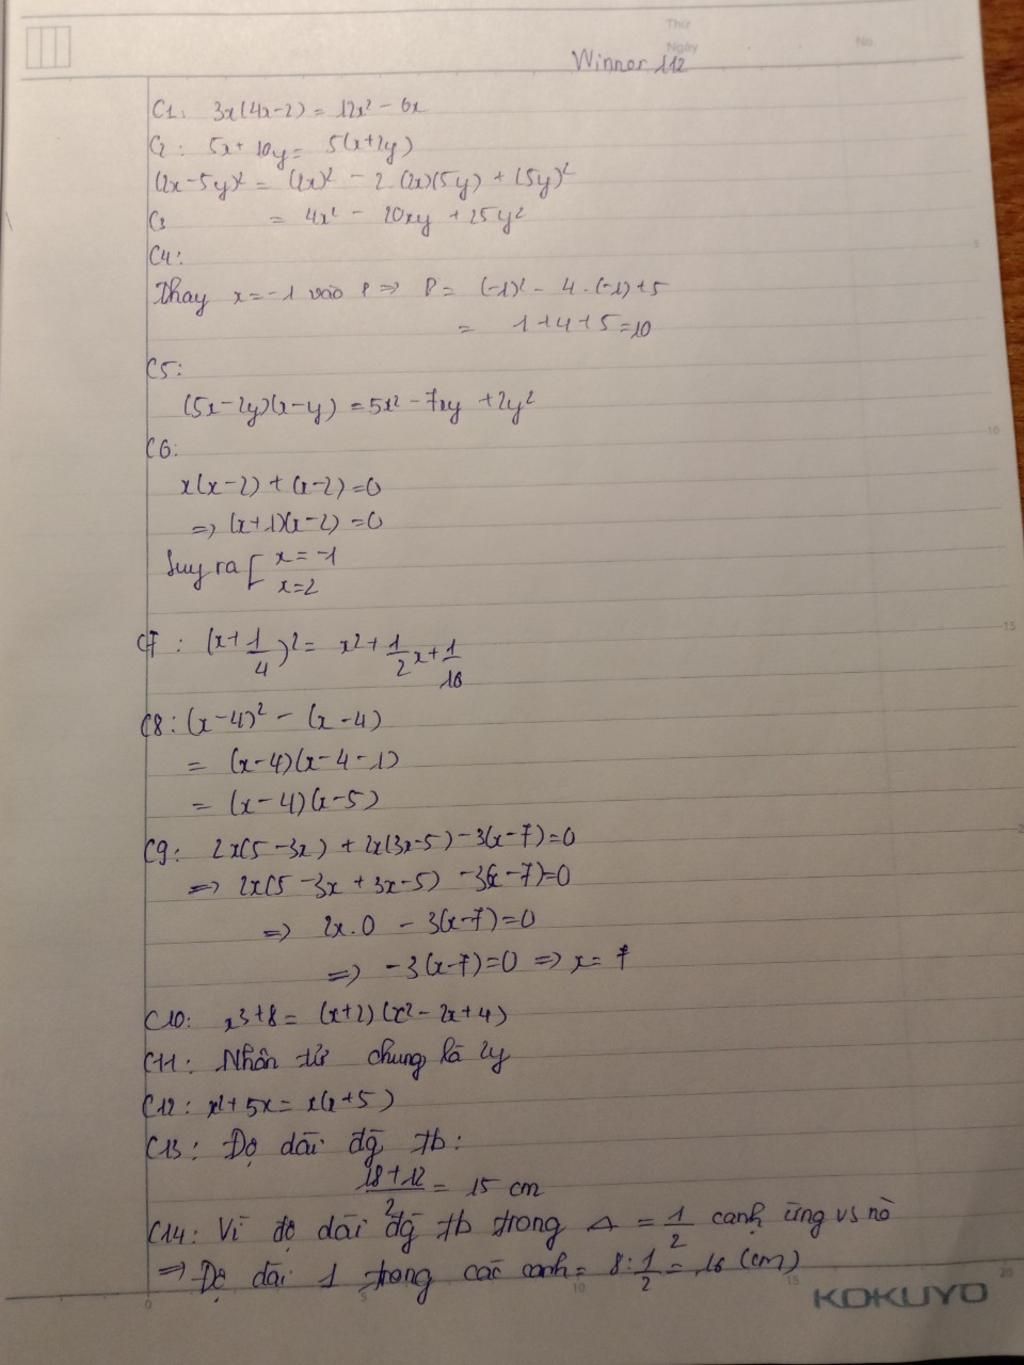 Thứ
Ngày
No.
Winner 112
C1: 3x(4x-2) = 12x² - 6x
C2: 5x + 10y = 5(x+2y)
(2x-5y)² = (2x)² - 2.(2x)(5y) + (5y)²
C3 = 4x² - 20xy + 25y²
C4:
Thay x = -1 vào P => P = (-1)² - 4.(-1)+5
= 1+4+5=10
C5:
(5x-2y)(x-y) = 5x² - 7xy + 2y²
C6:
x(x-2) + (x-2) = 0
=> (x+1)(x-2) = 0
Suy ra [ x = -1
x=2
C7: (x + 1/4)² = x² + 1/2 x + 1/16
C8: (x-4)² - (x-4)
= (x-4)(x-4-1)
= (x-4)(x-5)
C9: 2x(5-3x) + 2x(3x-5) - 3(x-7)=0
=> 2x(5-3x+3x-5) - 3(x-7)=0
=> 2x.0 - 3(x-7)=0
=> -3(x-7)=0 => x = 7
C10: x³+8 = (x+2)(x²-2x+4)
C11: Nhân tử chung là 2y
C12: x²+5x = x(x+5)
C13: Độ dài đg tb:
18+12/2 = 15 cm
C14: Vì độ dài đg tb trong Δ = 1/2 cạnh ứng vs nó
=> Độ dài 1 trong các cạnh = 8:1/2 = 16 (cm)
KOKUYO